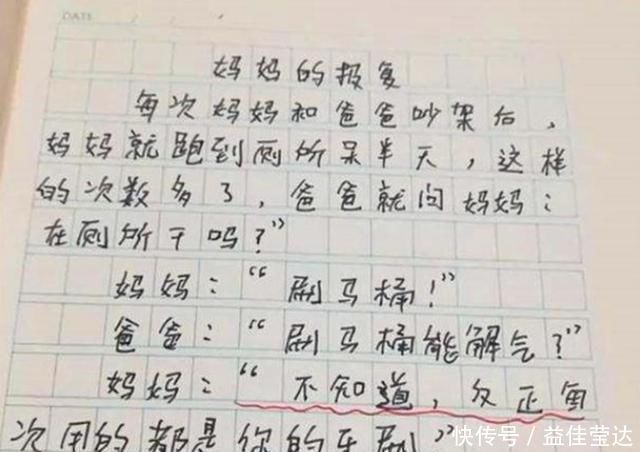 DATE
妈妈的报复
每次妈妈和爸爸吵架后，
妈妈就跑到厕所呆半天，这样
的次数多了，爸爸就问妈妈：
在厕所干吗？”
妈妈：“刷马桶！”
爸爸：“刷马桶能解气？”
妈妈：“不知道，反正每
次用的都是你的牙刷”
快传号/益佳莹达